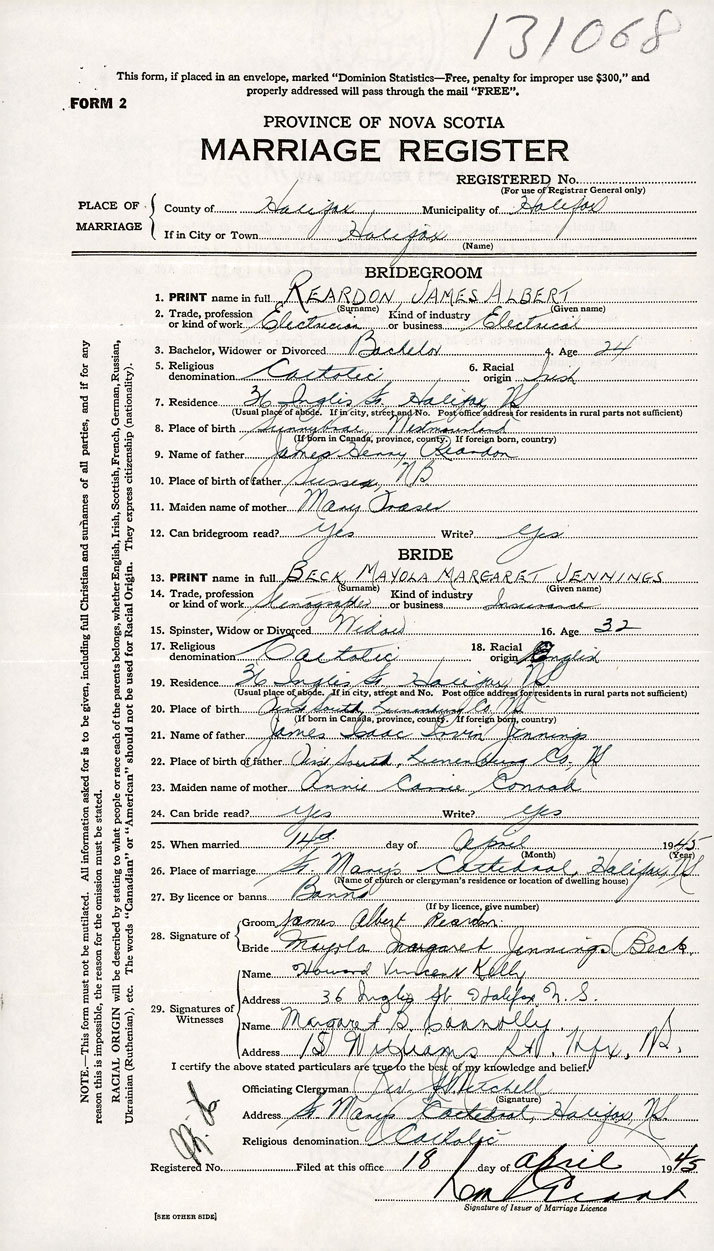 131068
This form, if placed in an envelope, marked "Dominion Statistics—Free, penalty for improper use $300," and
properly addressed will pass through the mail "FREE".
FORM 2
PROVINCE OF NOVA SCOTIA
MARRIAGE REGISTER
REGISTERED No.
(For use of Registrar General only)
PLACE OF MARRIAGE
County of Halifax Municipality of Halifax
If in City or Town Halifax
(Name)
BRIDEGROOM
1. PRINT name in full REARDON, JAMES ALBERT
(Surname) (Given name)
2. Trade, profession or kind of work Electrician Kind of industry or business Electrical
3. Bachelor, Widower or Divorced Bachelor 4. Age 24
5. Religious denomination Catholic 6. Racial origin Irish
7. Residence 36 Inglis St, Halifax, NS
(Usual place of abode. If in city, street and No. Post office address for residents in rural parts not sufficient)
8. Place of birth Sunnybrae, Westmorland
(If born in Canada, province, county. If foreign born, country)
9. Name of father James Henry Reardon
10. Place of birth of father Sussex, NB
11. Maiden name of mother Mary Fraser
12. Can bridegroom read? Yes Write? Yes
BRIDE
13. PRINT name in full BECK MAYOLA MARGARET JENNINGS
(Surname) (Given name)
14. Trade, profession or kind of work Stenographer Kind of industry or business Insurance
15. Spinster, Widow or Divorced Widow 16. Age 32
17. Religious denomination Catholic 18. Racial origin English
19. Residence 36 Inglis St, Halifax, NS
(Usual place of abode. If in city, street and No. Post office address for residents in rural parts not sufficient)
20. Place of birth South, Lunenburg Co, NS
(If born in Canada, province, county. If foreign born, country)
21. Name of father James Isaac Irvin Jennings
22. Place of birth of father South, Lunenburg Co, NS
23. Maiden name of mother Annie Carrie Conrad
24. Can bride read? Yes Write? Yes
25. When married 14th day of April 1945
(Month) (Year)
26. Place of marriage St Mary's Cathedral, Halifax, NS
(Name of church or clergyman's residence or location of dwelling house)
27. By licence or banns Banns
(If by licence, give number)
28. Signature of
Groom James Albert Reardon
Bride Mayola Margaret Jennings Beck
29. Signatures of Witnesses
Name Howard Vincent Kelly
Address 36 Inglis St Halifax N.S.
Name Margaret B. Connolly
Address 15 Williams St, Hfx, N.S.
I certify the above stated particulars are true to the best of my knowledge and belief.
Officiating Clergyman Rev. Mitchell
(Signature)
Address St Mary's Cathedral, Halifax, NS
Religious denomination Catholic
Registered No. Filed at this office 18 day of April 1945
Signature of Issuer of Marriage Licence
[SEE OTHER SIDE]
NOTE.—This form must not be mutilated. All information asked for is to be given, including full Christian and surnames of all parties, and if for any
reason this is impossible, the reason for the omission must be stated.
RACIAL ORIGIN will be described by stating to what people or race each of the parents belongs, whether English, Irish, Scottish, French, German, Russian,
Ukrainian (Ruthenian), etc. The words "Canadian" or "American" should not be used for Racial Origin. They express citizenship (nationality).